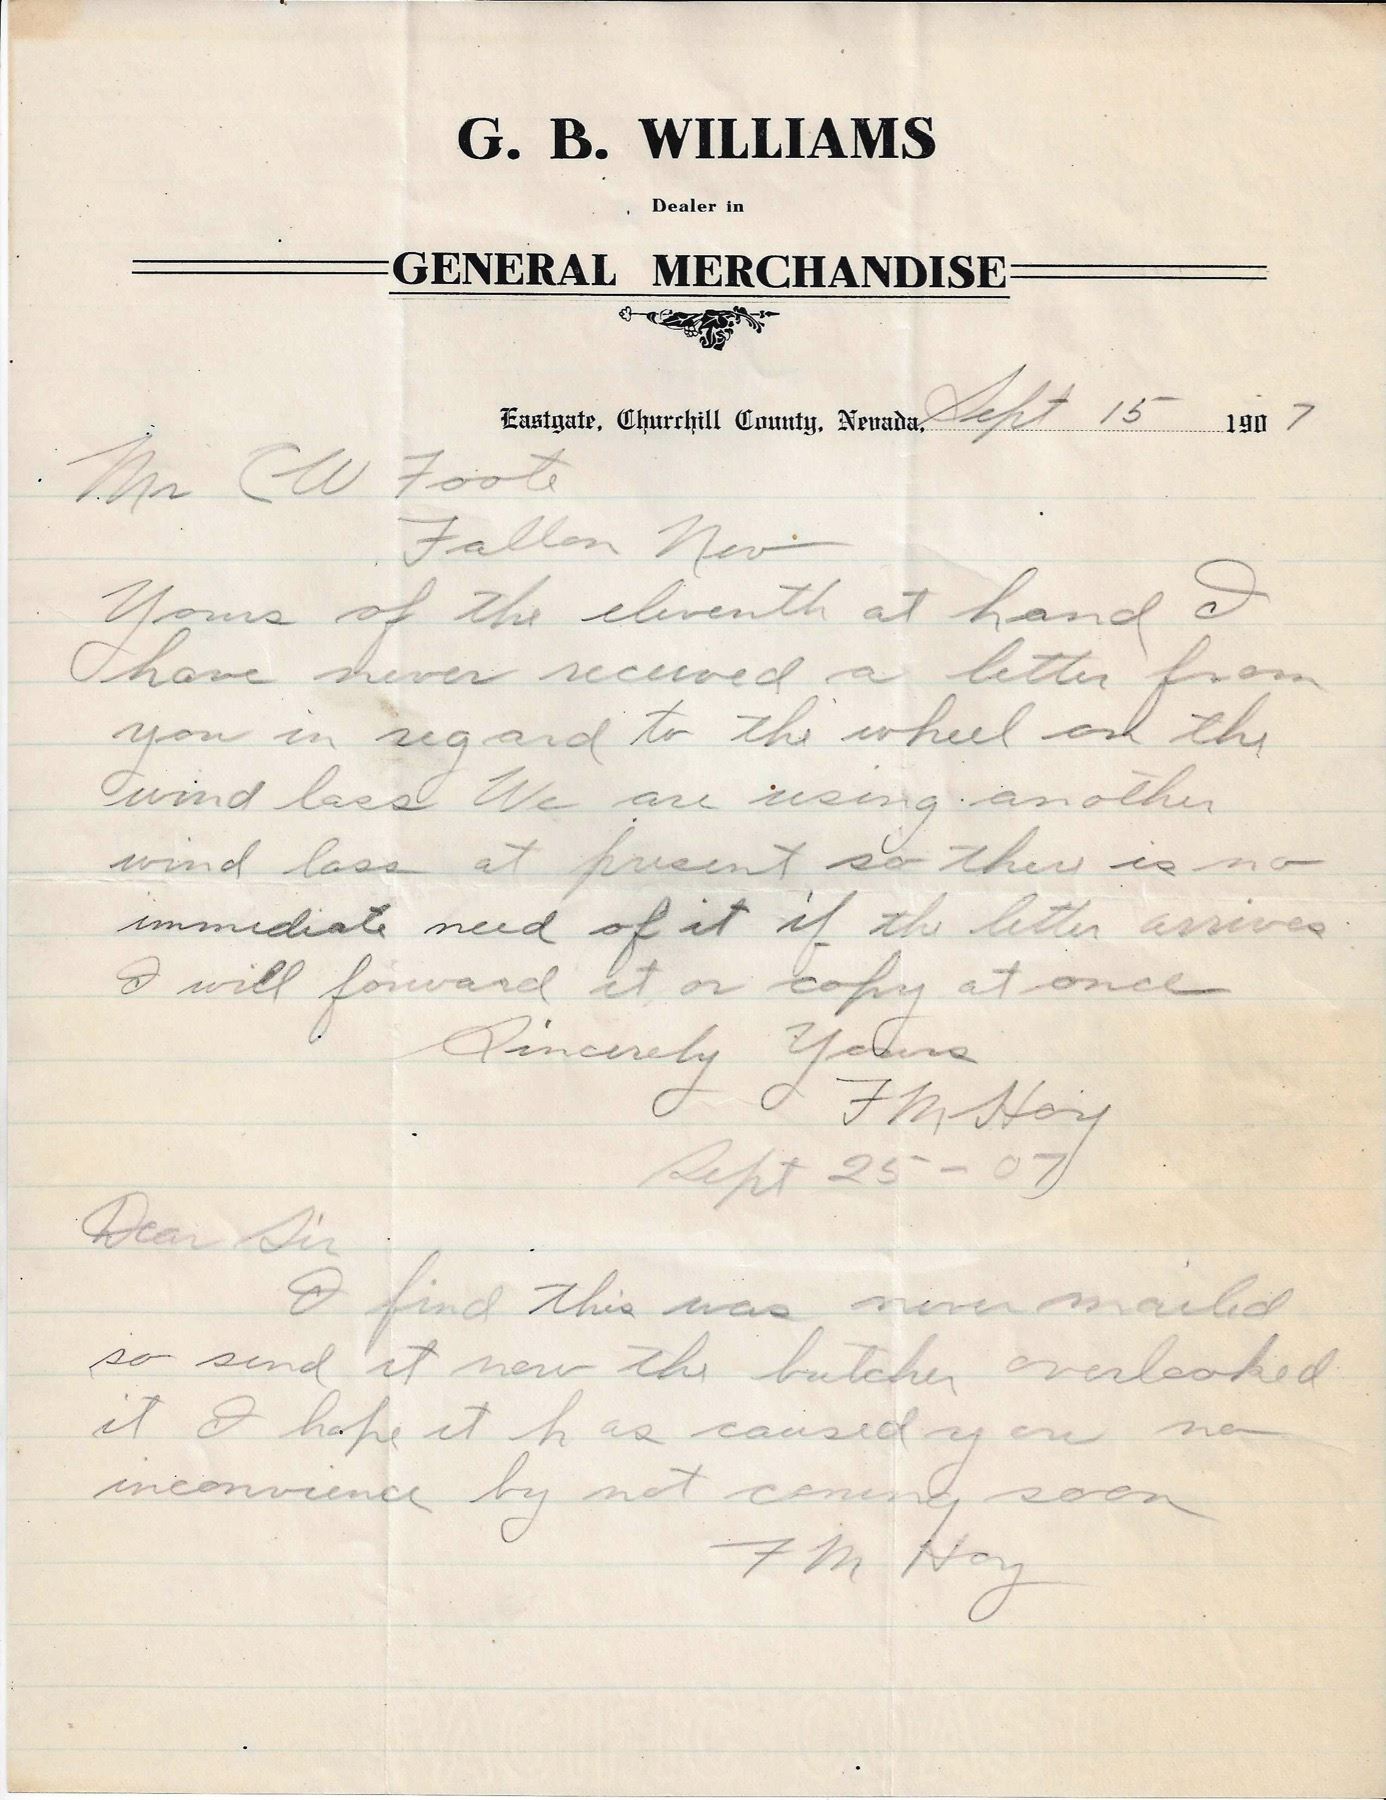 G. B. WILLIAMS
Dealer in
GENERAL MERCHANDISE
Eastgate, Churchill County, Nevada, Sept 15 1907
Mr C W Foote
Fallon Nev
Yours of the eleventh at hand I
have never received a letter from
you in regard to the wheel on the
wind lass We are using another
wind lass at present so there is no
immediate need of it if the letter arrives
I will forward it or copy at once
Sincerely Yours
F M Hoy
Sept 25 - 07
Dear Sir
I find this was never mailed
so send it now the butcher overlooked
it I hope it has caused you no
inconvience by not coming soon
F M Hoy